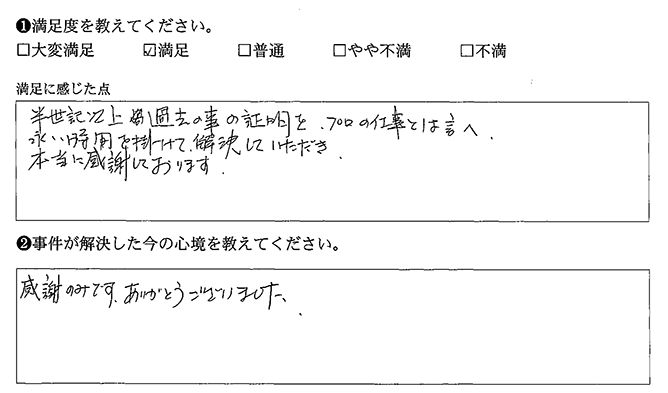 ❶満足度を教えてください。
□大変満足 ☑満足 □普通 □やや不満 □不満
満足に感じた点
半世記以上 過去の事の証明を、プロの仕事とは言へ、
永い時間を掛けて、解決していただき、
本当に感謝しております。
❷事件が解決した今の心境を教えてください。
感謝のみです。ありがとうございました。